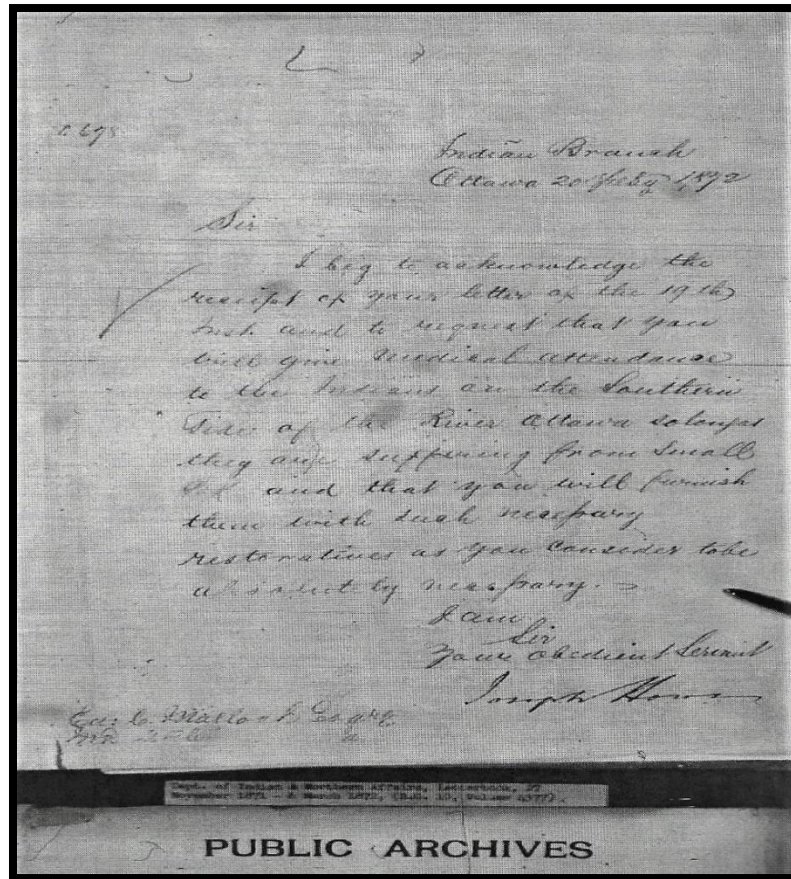 Indian Branch
Ottawa 20 Feby 1872
Sir
I beg to acknowledge the
receipt of your letter of the 19th
Inst and to request that you
will give medical attendance
to the Indians on the Southern
Side of the River Ottawa solongas
they are suffering from Small
and that you will furnish
them with such necessary
restoratives as you consider tobe
absolutely necessary.
I am
Sir
Your obedient Servant
Joseph Howe
Esqre
Dept. of Indian & Northern Affairs, Letterbook, 27
November 1871 - 2 March 1872, (R.G. 10, Volume 4377).
PUBLIC ARCHIVES